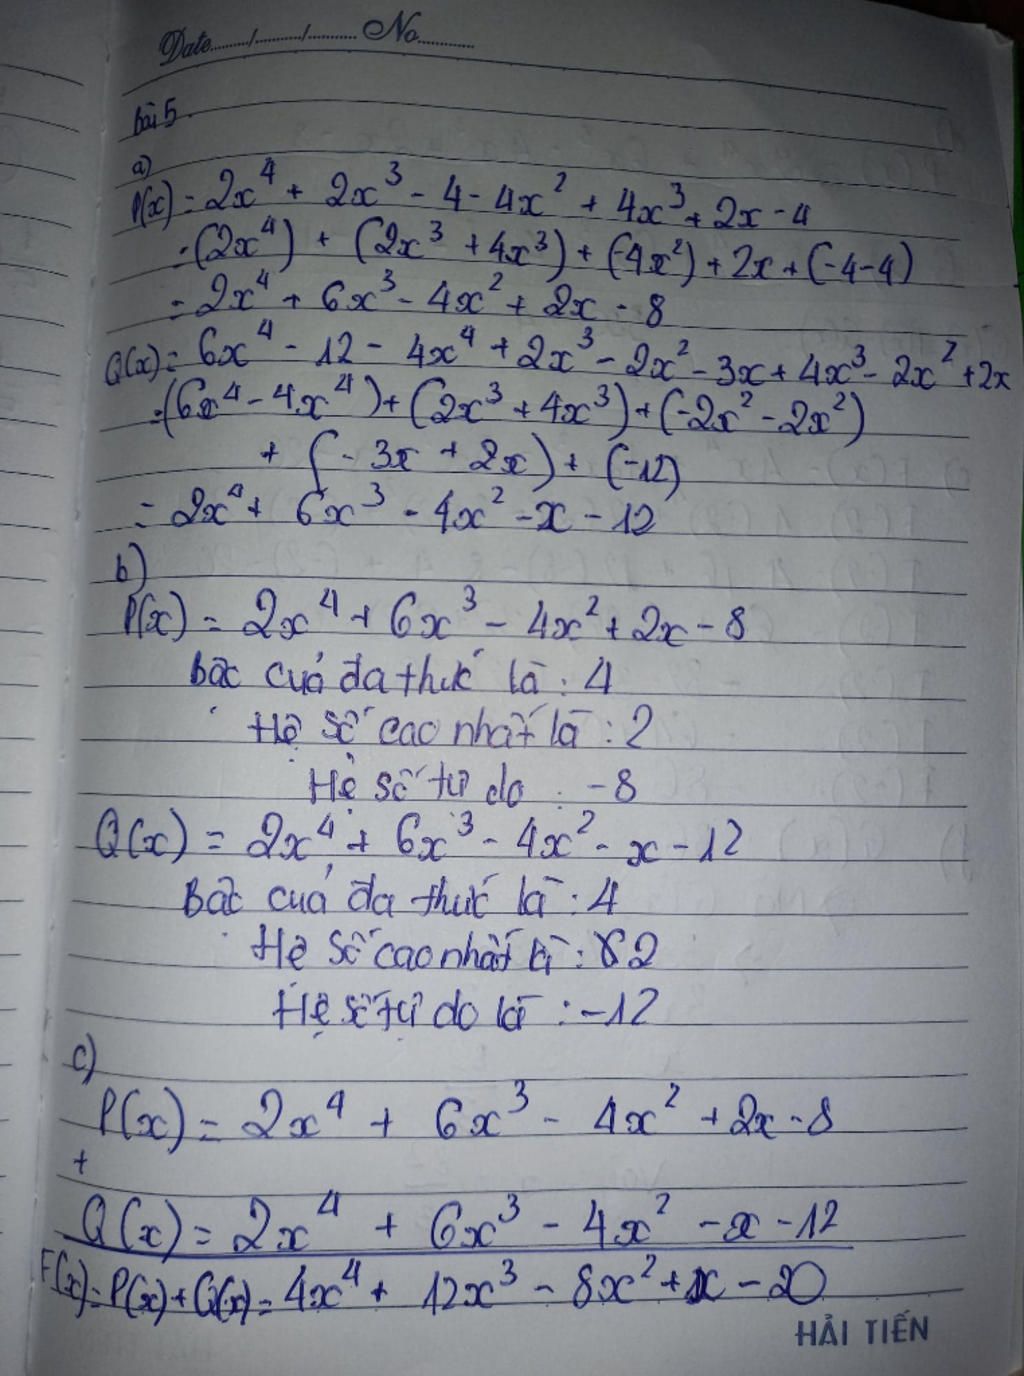 Date......../........../........... No............
bài 5.
a)
P(x) = 2x⁴ + 2x³ - 4 - 4x² + 4x³ + 2x - 4
= (2x⁴) + (2x³ + 4x³) + (-4x²) + 2x + (-4-4)
= 2x⁴ + 6x³ - 4x² + 2x - 8
Q(x) = 6x⁴ - 12 - 4x⁴ + 2x³ - 2x² - 3x + 4x³ - 2x² + 2x
= (6x⁴ - 4x⁴) + (2x³ + 4x³) + (-2x² - 2x²)
+ (-3x + 2x) + (-12)
= 2x⁴ + 6x³ - 4x² - x - 12
b)
P(x) = 2x⁴ + 6x³ - 4x² + 2x - 8
Bậc của đa thức là : 4
Hệ số cao nhất là : 2
Hệ số tự do : -8
Q(x) = 2x⁴ + 6x³ - 4x² - x - 12
Bậc của đa thức là : 4
Hệ số cao nhất là : 2
Hệ số tự do là : -12
c)
P(x) = 2x⁴ + 6x³ - 4x² + 2x - 8
+
Q(x) = 2x⁴ + 6x³ - 4x² - x - 12
F(x) = P(x) + Q(x) = 4x⁴ + 12x³ - 8x² + x - 20
HẢI TIẾN